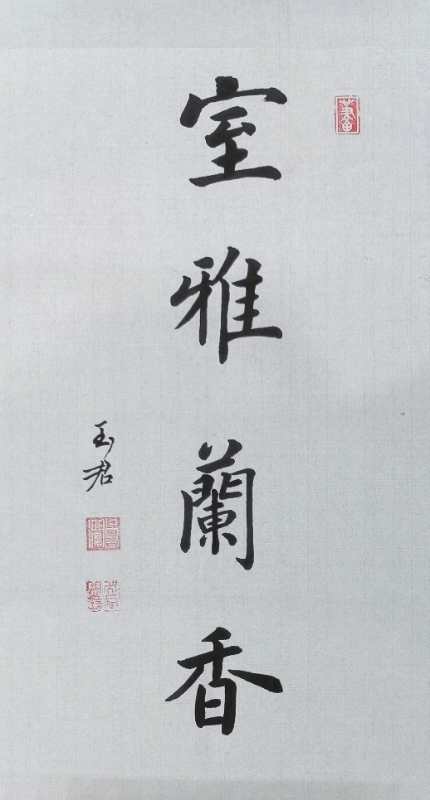 室雅蘭香
玉君